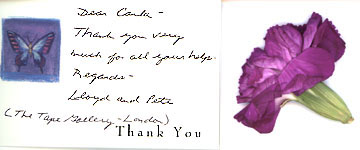 Dear Carla -
Thank you very
much for all your help.
Regards -
Lloyd and Pete
(The Tape Gallery - London)
Thank You